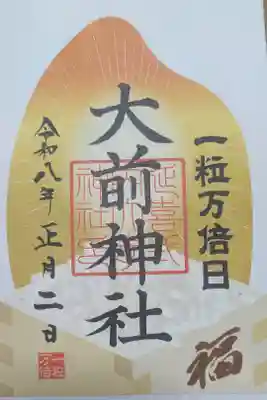 一粒万倍日
大前神社
延喜式内社
令和八年正月二日
福
一粒万倍